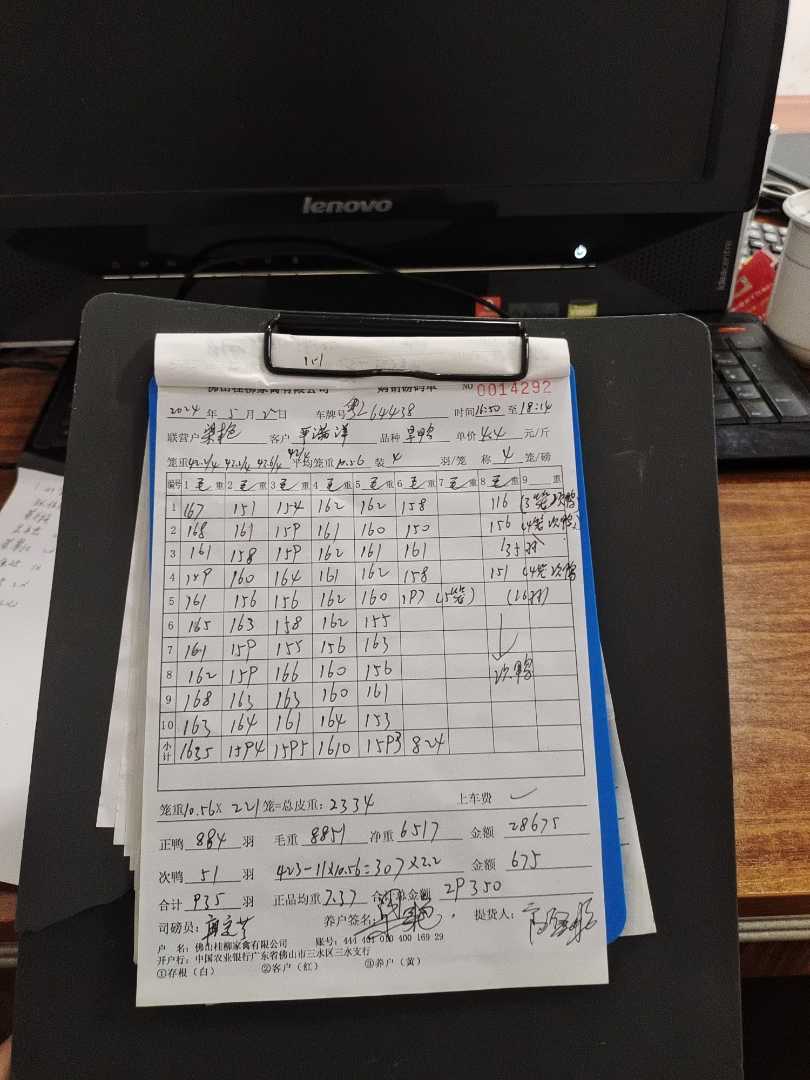 lenovo
ideacentre
佛山桂柳家禽有限公司 购销磅码单 NO 0014292
2024 年 5 月 25 日 车牌号 粤L64438 时间 16:50 至 18:14
联营户 客户 平满洋 品种 旱鸭 单价 4.4 元/斤
笼重 42.4/4 42.2/4 42.6/4 42/4 平均笼重 10.56 装 4 羽/笼 称 4 笼/磅
编号 1 毛重 2 毛重 3 毛重 4 毛重 5 毛重 6 毛重 7 毛重 8 毛重 9 重
1 167 151 154 162 162 158 116 (3笼)次鸭
2 168 161 159 161 160 150 156 (4笼次鸭)
3 161 158 159 162 161 161 (35羽)
4 159 160 164 161 162 158 151 (4笼次鸭
5 161 156 156 162 160 197 (5笼) (16羽)
6 165 163 158 162 155
7 161 159 155 156 163
8 162 159 166 160 156 次鸭
9 168 163 163 160 161
10 163 164 161 164 153
小计 1635 1594 1595 1610 1593 824
笼重 10.56 X 221 笼=总皮重: 2334 上车费 ✓
正鸭 884 羽 毛重 8851 净重 6517 金额 28675
次鸭 51 羽 423-11X10.56=307X2.2 金额 675
合计 935 羽 正品均重 7.37 合计总金额 29350
司磅员: 养户签名: 提货人:
户 名: 佛山桂柳家禽有限公司 账号: 444 401 010 400 169 29
开户行: 中国农业银行广东省佛山市三水区三水支行
①存根(白) ②客户(红) ③养户(黄)